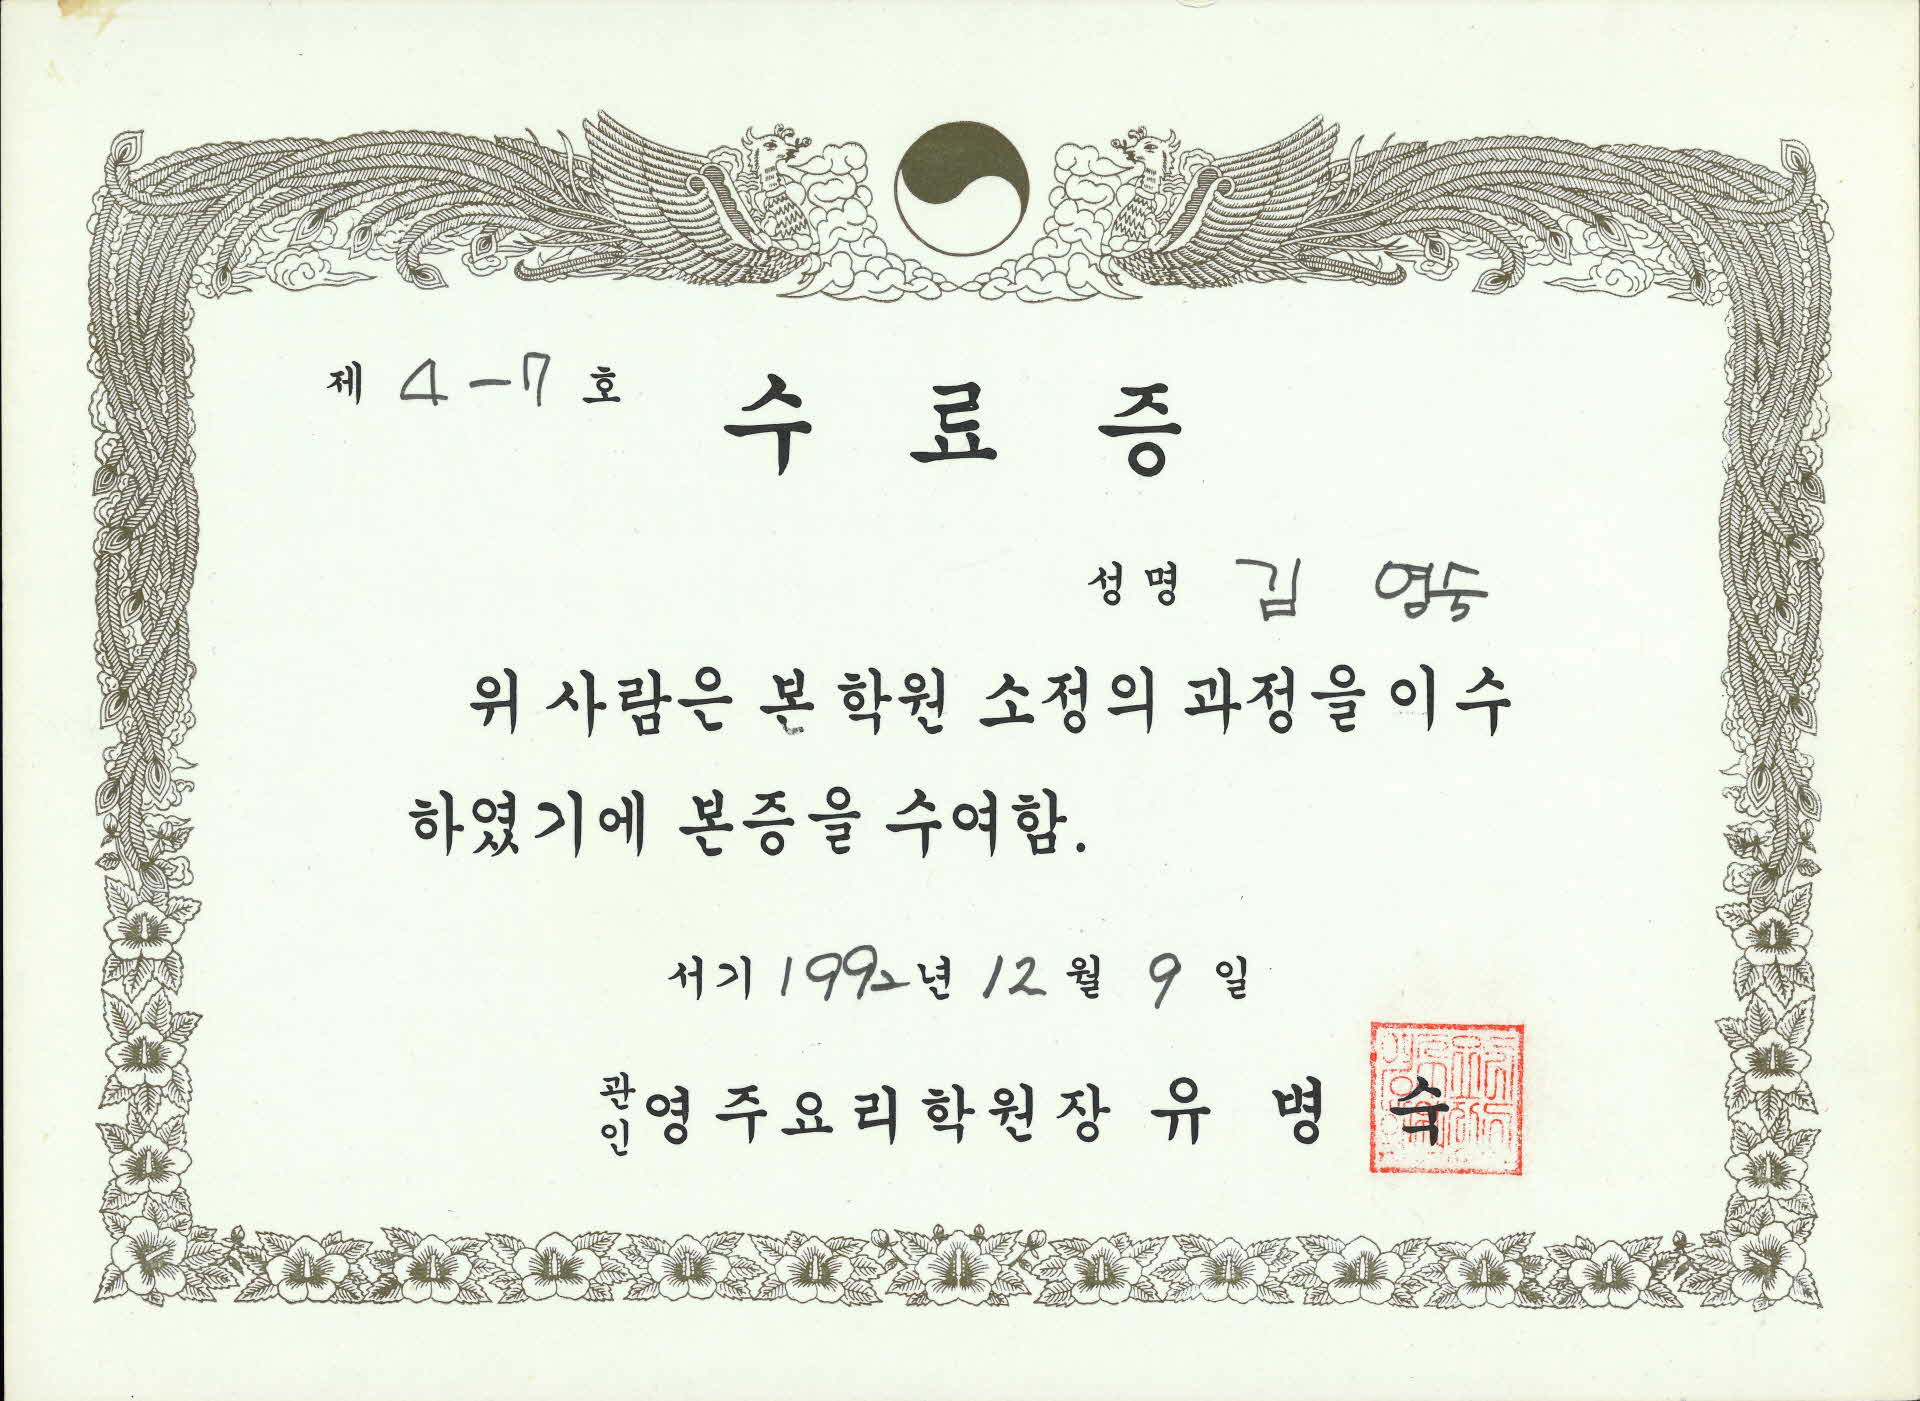 제 4-7 호
수 료 증
성명 김 영숙
위 사람은 본 학원 소정의 과정을 이수
하였기에 본증을 수여함.
서기 1992년 12월 9일
관인 영주요리학원장 유 병 숙